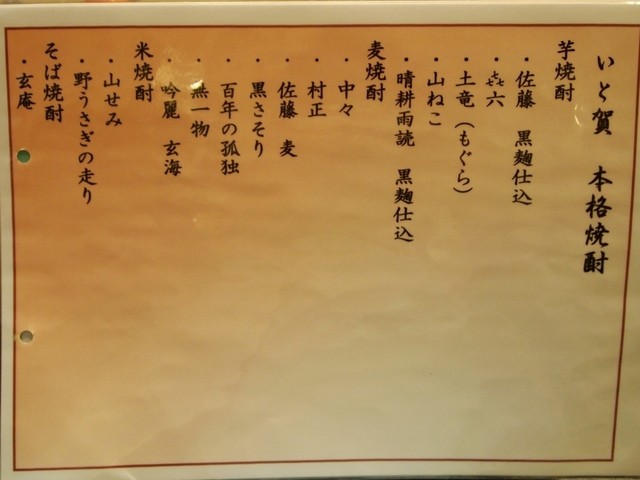 いと賀 本格焼酎
芋焼酎
・佐藤 黒麹仕込
・㐂六
・土竜(もぐら)
・山ねこ
・晴耕雨読 黒麹仕込
麦焼酎
・中々
・村正
・佐藤 麦
・黒さそり
・百年の孤独
・無一物
・吟麗 玄海
米焼酎
・山せみ
・野うさぎの走り
そば焼酎
・玄庵